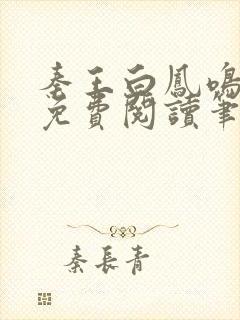 秦王白鳳鳴
免費閱讀筆
秦長青